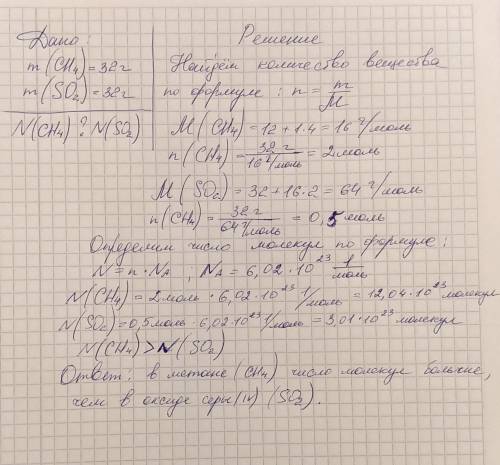 Дано:
m(CH₄)=32г
m(SO₂)=32г
N(CH₄) ? N(SO₂)
Решение
Найдём количество вещества
по формуле: n = m/M
M(CH₄)=12+1·4=16 г/моль
n(CH₄)= 32г/16 г/моль = 2моль
M(SO₂)=32+16·2=64 г/моль
n(CH₄)= 32г/64 г/моль = 0,5моль
Определим число молекул по формуле:
N=n·N_A ; N_A=6,02·10²³ 1/моль
N(CH₄)=2моль·6,02·10²³ 1/моль=12,04·10²³молекул
N(SO₂)=0,5моль·6,02·10²³ 1/моль=3,01·10²³молекул
N(CH₄)>N(SO₂)
Ответ: в метане (CH₄) число молекул больше,
чем в оксиде серы(IV) (SO₂).